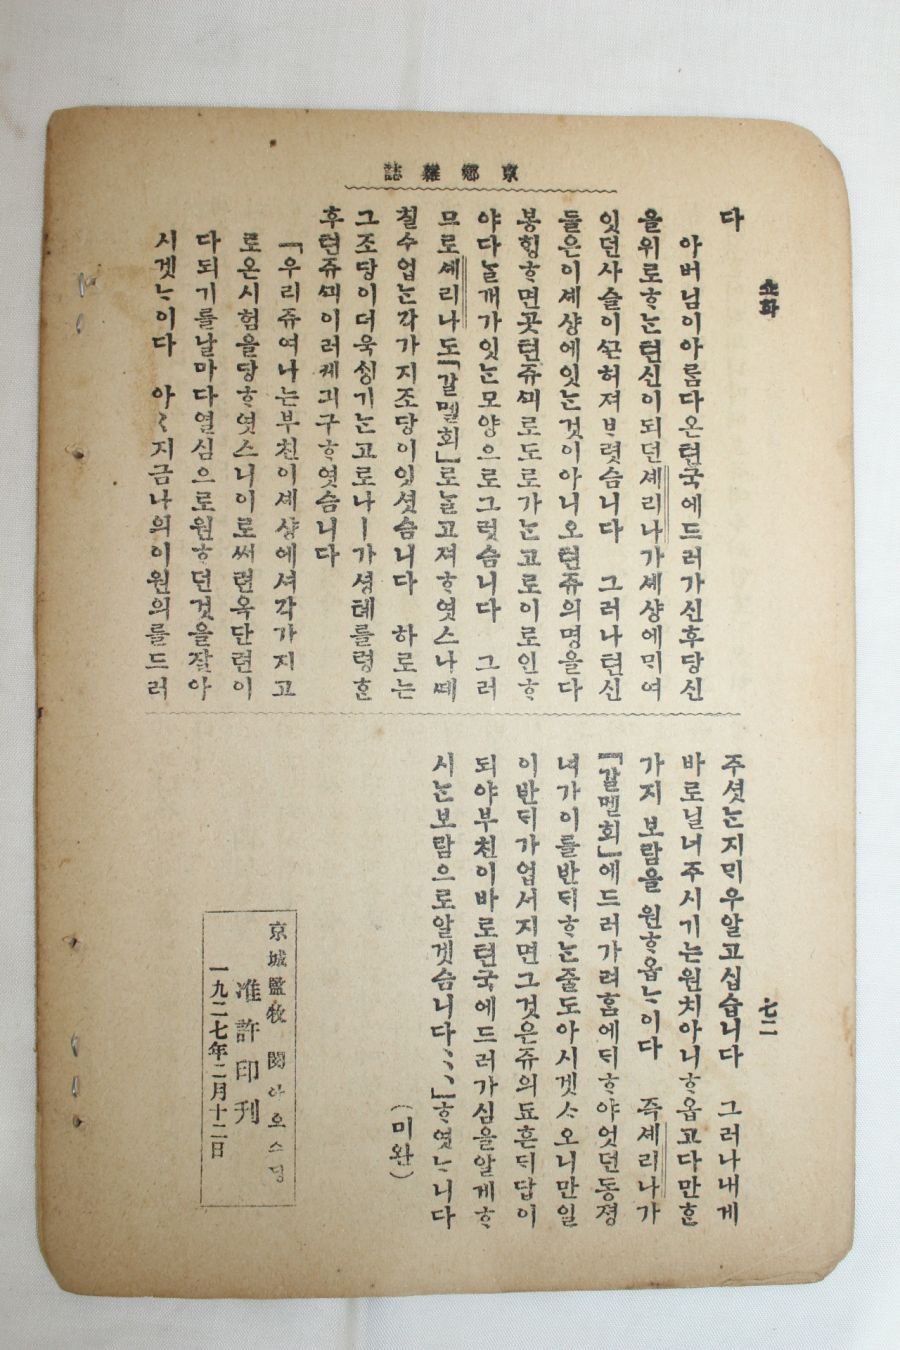 京鄕雜誌
소화
七二
다
아버님이아름다온텬국에드러가신후당신
을위로ᄒᆞᄂᆞᆫ텬신이되던셰리나가셰샹에ᄆᆡ여
잇던사슬이ᄭᅳᆫ허져ᄇᆞ렷슴니다 그러나텬신
들은이셰샹에잇ᄂᆞᆫ것이아니오텬쥬의명을다
봉ᄒᆡᆼᄒᆞ면곳텬쥬ᄭᅴ로도로가ᄂᆞᆫ고로이로인ᄒᆞ
야다ᄂᆞᆯ개가잇ᄂᆞᆫ모양으로그럿슴니다 그러
므로셰리나도「갈멜회」로ᄂᆞᆯ고져ᄒᆞ엿스나ᄯᅦ
칠수업ᄂᆞᆫ각가지조당이잇셧슴니다 하로는
그조당이더욱ᄉᆡᆼ기ᄂᆞᆫ고로나ㅣ가셩톄를령ᄒᆞᆫ
후텬쥬ᄭᅴ이러케긔구ᄒᆞ엿슴니다
「우리쥬여나는부친이셰샹에셔각가지고
로온시험을당ᄒᆞ엿스니이로써련옥단련이
다되기를날마다열심으로원ᄒᆞ던것을잘아
시겟ᄂᆞ이다 아〱지금나의이원의를드러
주셧ᄂᆞᆫ지ᄆᆡ우알고십습니다 그러나내게
바로닐너주시기는원치아니ᄒᆞ옵고다만ᄒᆞᆫ
가지 보람을 원ᄒᆞ옵ᄂᆞ이다 즉셰리나가
「갈멜회」에드러가려홈에ᄃᆡᄒᆞ야엇던동졍
녀가이를반ᄃᆡᄒᆞᄂᆞᆫ줄도아시겟ᄉᆞ오니만일
이반ᄃᆡ가업서지면그것은쥬의됴흔ᄃᆡ답이
되야부친이바로텬국에드러가심을알게ᄒᆞ
시ᄂᆞᆫ보람으로알겟슴니다ᄾᆞ」ᄒᆞ엿ᄂᆞ니다
(미완)
京城監牧 閔아오스딩
准許印刊
一九二七年二月十二日